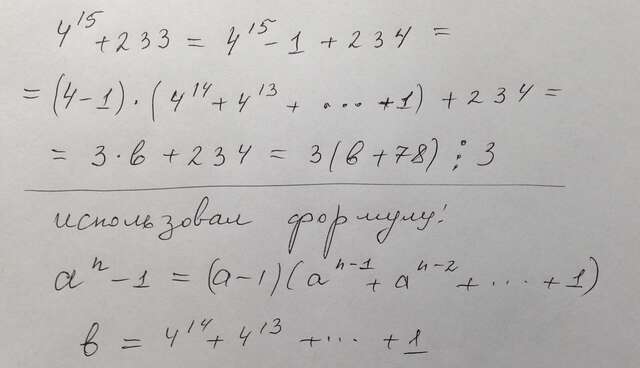 4¹⁵ + 233 = 4¹⁵ - 1 + 234 =
= (4-1)·(4¹⁴ + 4¹³ + ... + 1) + 234 =
= 3·в + 234 = 3(в + 78) ⋮ 3
использовал формулу:
aⁿ - 1 = (a-1)(aⁿ⁻¹ + aⁿ⁻² + ... + 1)
в = 4¹⁴ + 4¹³ + ... + 1